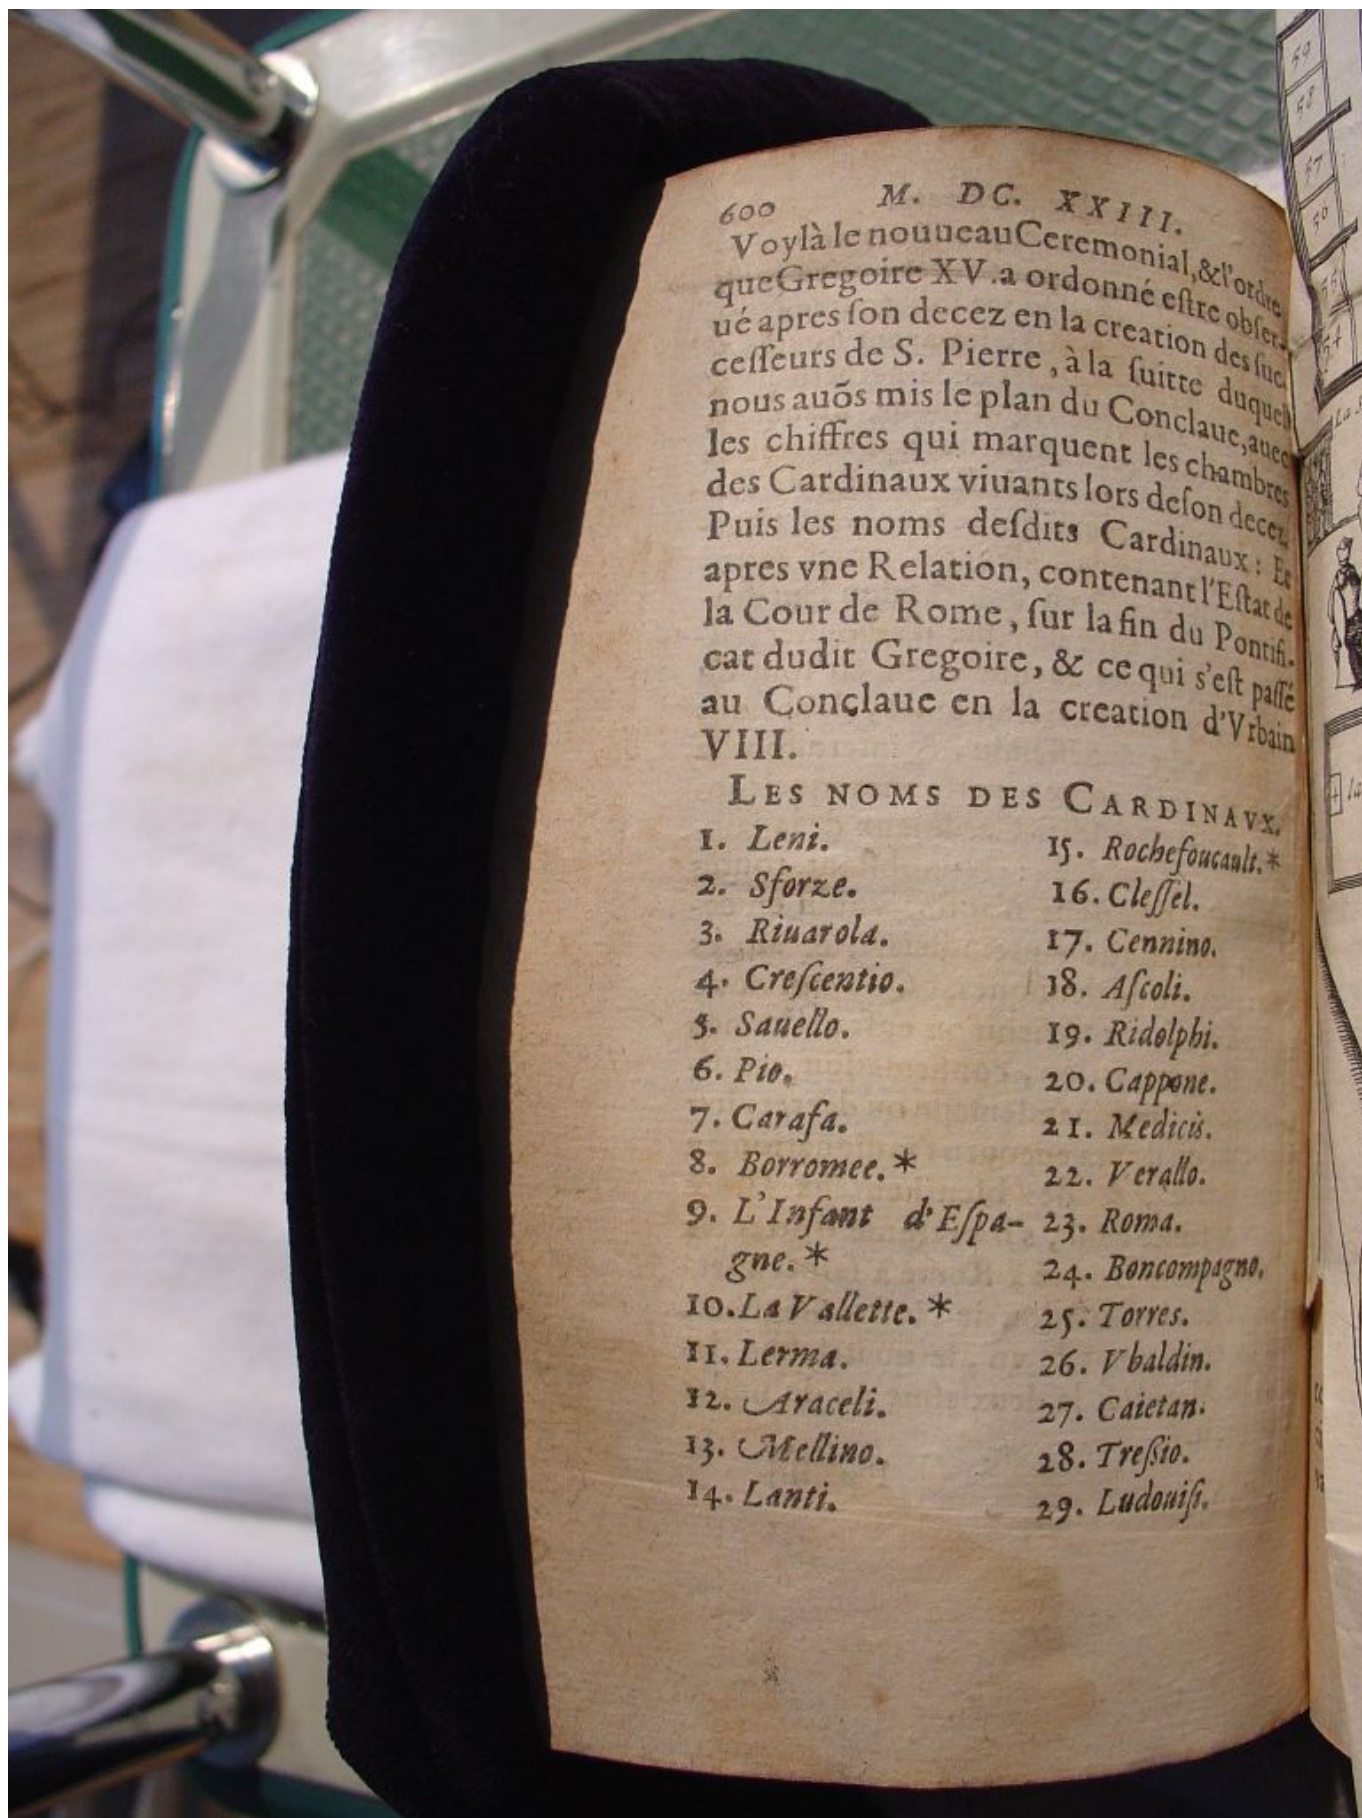 600 M. DC. XXIII.
Voylà le nouueau Ceremonial, & l'ordre
que Gregoire XV. a ordonné eſtre obſer-
ué apres ſon decez en la creation des ſuc-
ceſſeurs de S. Pierre, à la ſuitte duquel
nous auõs mis le plan du Conclaue, auec
les chiffres qui marquent les chambres
des Cardinaux viuants lors de ſon decez,
Puis les noms deſdits Cardinaux: Et
apres vne Relation, contenant l'Eſtat de
la Cour de Rome, ſur la fin du Pontifi-
cat dudit Gregoire, & ce qui s'eſt paſſé
au Conclaue en la creation d'Vrbain
VIII.
LES NOMS DES CARDINAVX.
1. Leni.
2. Sforze.
3. Riuarola.
4. Creſcentio.
5. Sauello.
6. Pio.
7. Carafa.
8. Borromee.*
9. L'Infant d'Eſpa-
gne.*
10. La Vallette.*
11. Lerma.
12. Araceli.
13. Mellino.
14. Lanti.
15. Rochefoucault.*
16. Cleſſel.
17. Cennino.
18. Aſcoli.
19. Ridolphi.
20. Cappone.
21. Medicis.
22. Verallo.
23. Roma.
24. Boncompagno.
25. Torres.
26. Vbaldin.
27. Caietan.
28. Treſſio.
29. Ludouiſi.
59
58
57
54